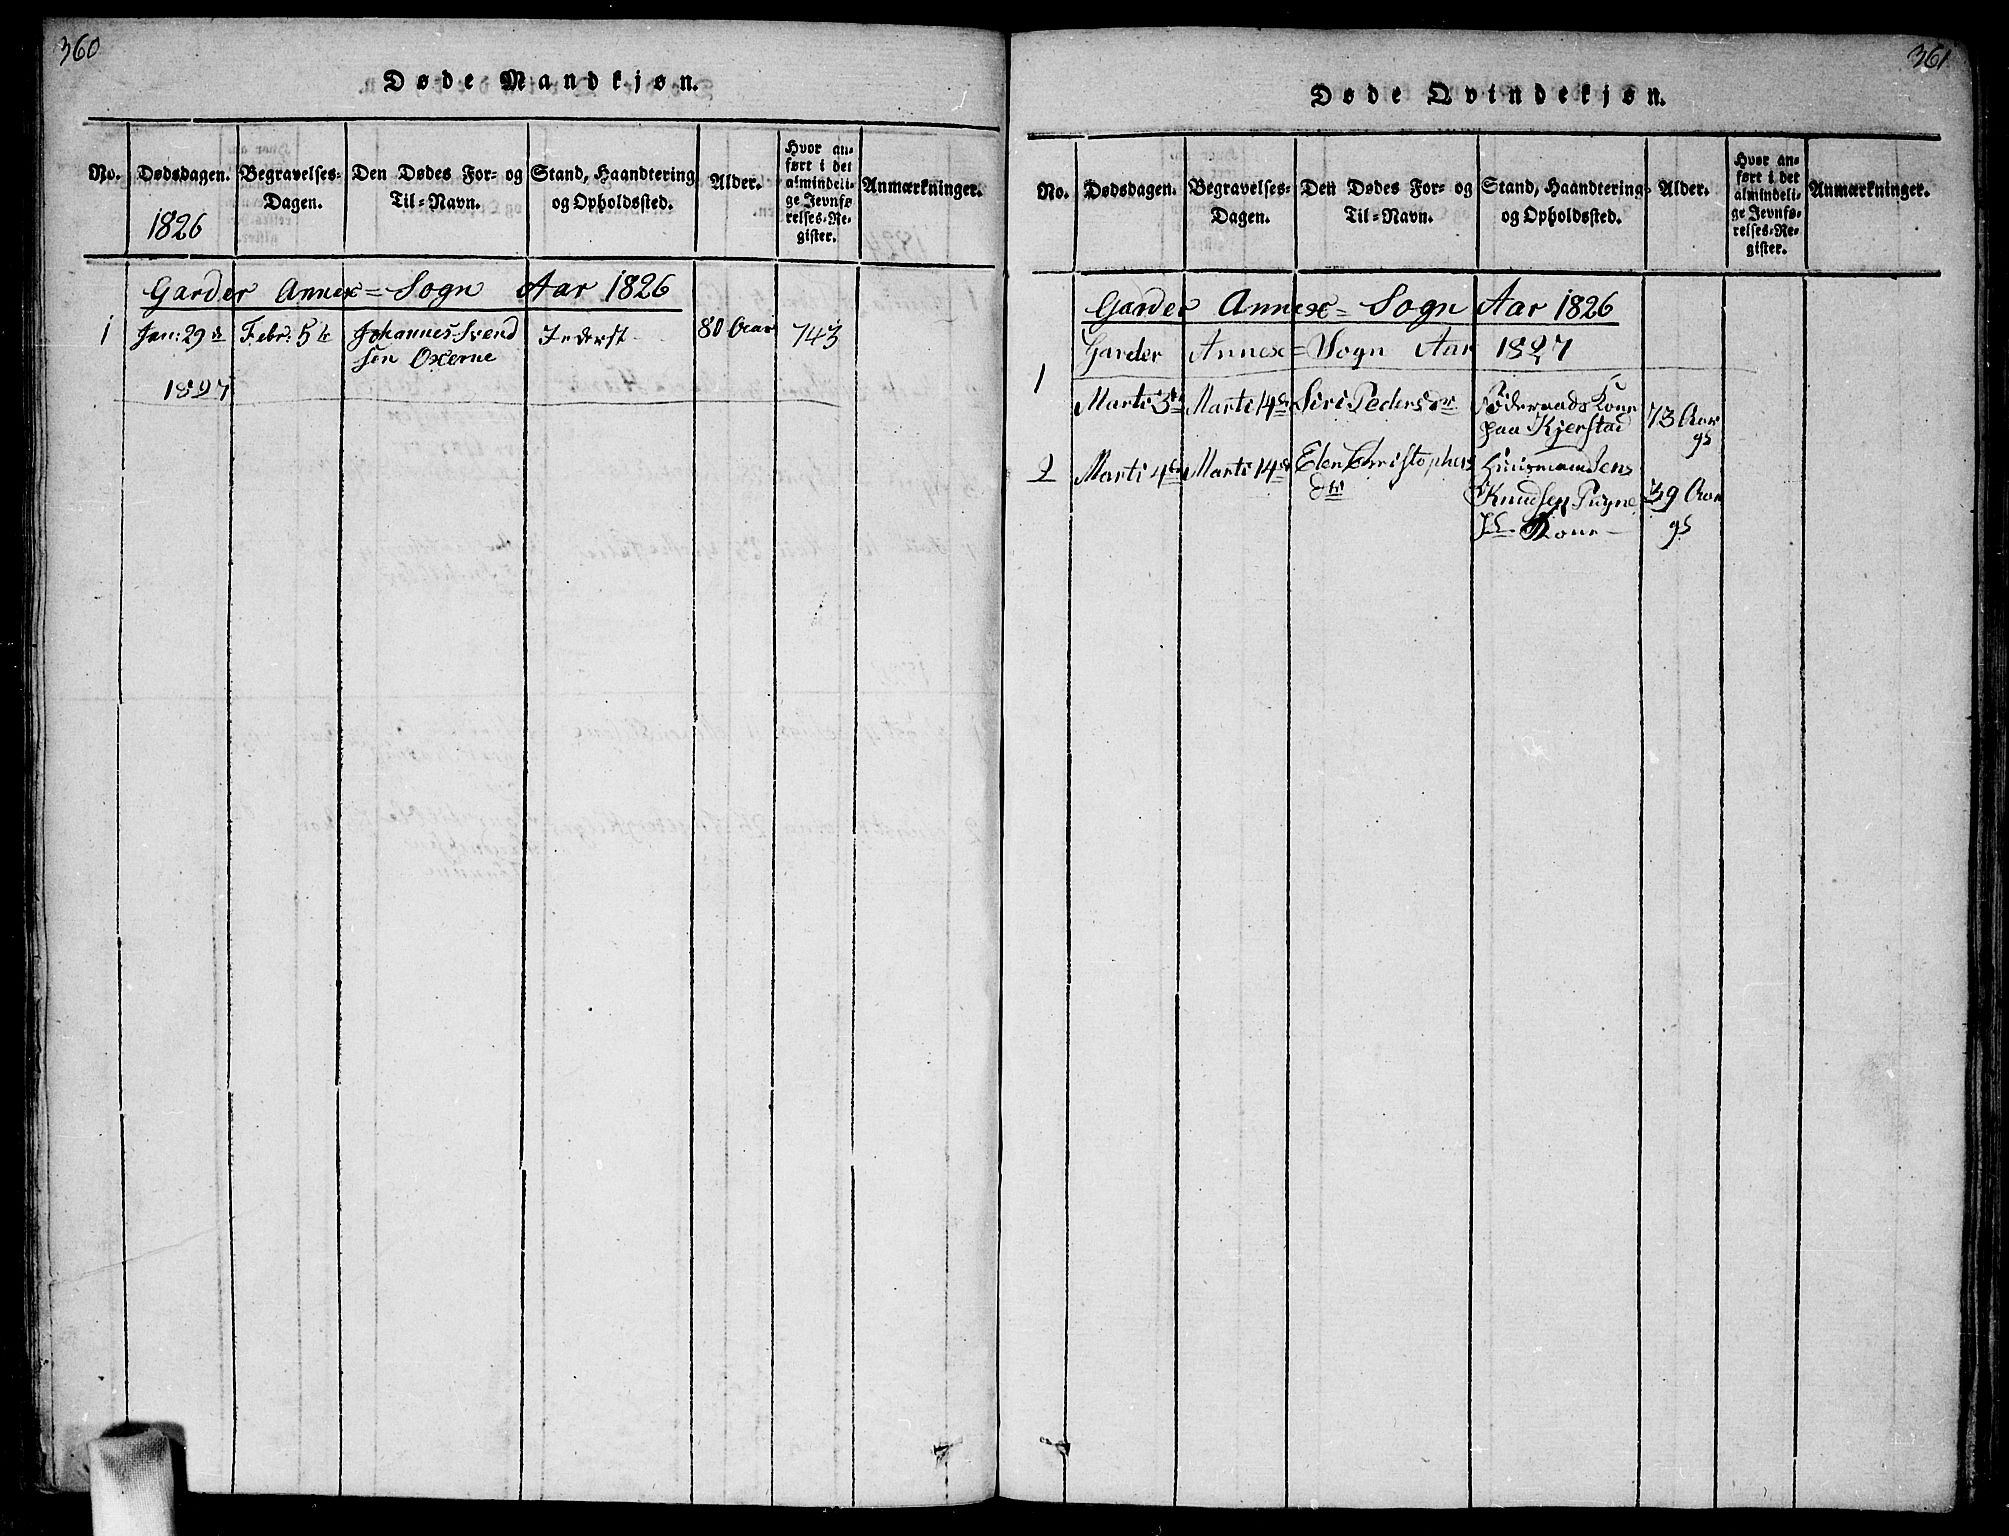 360
Døde Mandkjøn.
No.
Dødsdagen.
1826
Begravelses-
Dagen.
Den Dødes For- og
Til-Navn.
Stand, Haandtering
og Opholdssted.
Alder.
Hvor an-
ført i det
almindeli-
ge Jevnfø-
relses-Re-
gister.
Anmærkninger.
Garder Annex=Sogn Aar 1826
1
Jan: 29de
Febr: 5te
Johannes Svend
sen Oxerne
Inderst
80 Aar
743
1827
361
Døde Qvindekjøn.
No.
Dødsdagen.
Begravelses-
Dagen.
Den Dødes For- og
Til-Navn.
Stand, Haandtering
og Opholdssted.
Alder.
Hvor an-
ført i det
almindeli-
ge Jevnfø-
relses-Re-
gister.
Anmærkninger.
Garder Annex=Sogn Aar 1826
Garder Annex=Sogn Aar 1827
1
Marti 3de
Marti 14de
Siri Pedersdr
Föderaads Kone
paa Kjerstad
73 Aar
gl
2
Marti 4de
Marti 14de
Elen Christophers
dtr
Huusmandens
Knudsen
Kone
39 Aar
gl